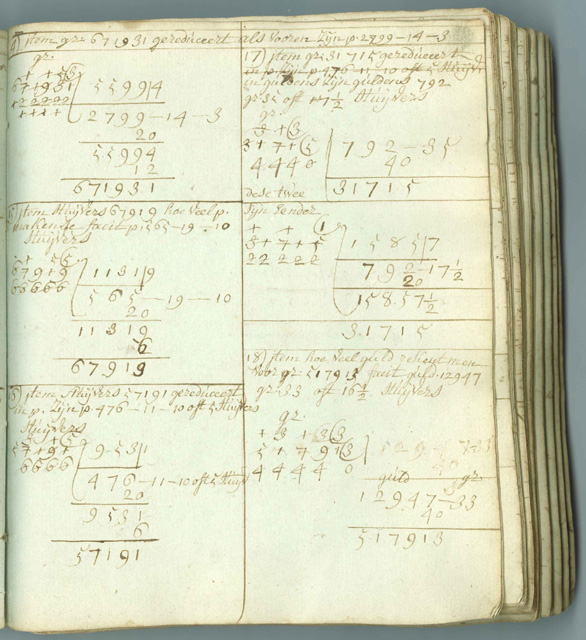 item gr. 671931 gereduceert als vooren Zijn p. 2799-14-3
gr.
671931
222222
55994
2799-14-3
20
55994
12
671931
item Stuijvers 67919 hoe veel p.
facit p. 565-19-10
Stuijvers
67919
66666
11319
565-19-10
20
11319
6
67919
item Stuijvers 57191 gereduceert
in p. Zijn p. 476-11-10 oft 5 Stuijvers
Stuijvers
57191
6666
9531
476-11-10 oft 5 Stuijv
20
9531
6
57191
17) item gr. 31715 gereduceert
in p. Zijn p. 476-11-10 oft 5 Stuijv
in guldens Zijn guldens 792
gr. 35 oft 17½ Stuijvers
gr.
31715
4440
792-35
40
31715
dese twee
Zijn eender
31715
22222
15857
792-17½
20
15857½
31715
18) item hoe veel guld
voor gr. 517913 facit guld. 12947
gr. 33 oft 16½ Stuijvers
gr.
517913
44440
guld gr.
12947-33
40
517913